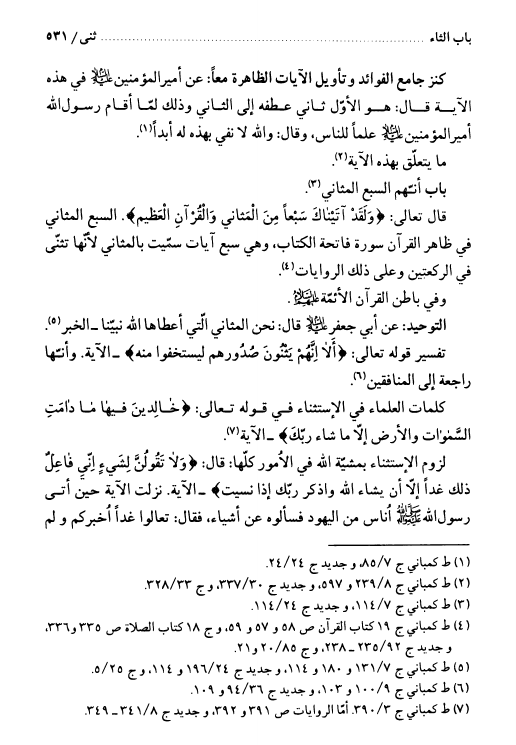 باب الثاء ........ ثنى / ٥٣١
كنز جامع الفوائد وتأويل الآيات الظاهرة معاً: عن أميرالمؤمنين عليه السلام في هذه
الآيـة قـال: هـو الأوّل ثـاني عـطفه إلى الثـاني وذلك لمّـا أقـام رسـول‌الله
أميرالمؤمنين عليه السلام علماً للناس، وقال: والله لا نفي بهذه له أبداً(١).
ما يتعلّق بهذه الآية(٢).
باب أنّهم السبع المثاني(٣).
قال تعالى: ﴿وَلَقَدْ آتَيْنٰاكَ سَبْعاً مِنَ الْمَثاني وَالْقُرْآنِ الْعَظيمِ﴾. السبع المثاني
في ظاهر القرآن سورة فاتحة الكتاب، وهي سبع آيات سمّيت بالمثاني لأنّها تثنّى
في الركعتين وعلى ذلك الروايات(٤).
وفي باطن القرآن الأئمّة عليهم السلام.
التوحيد: عن أبي جعفر عليه السلام قال: نحن المثاني الّتي أعطاها الله نبيّنا ـ الخبر(٥).
تفسير قوله تعالى: ﴿أَلاٰ إنَّهُمْ يَثْنُونَ صُدُورهم ليستخفوا منه﴾ ـ الآية. وأنّها
راجعة إلى المنافقين(٦).
كلمات العلماء في الإستثناء فـي قـوله تـعالى: ﴿خٰـالِدينَ فـيهٰا مٰـا دٰامَتِ
السَّمٰوٰات والأرض إلّا ما شاء ربّكَ﴾ ـ الآية(٧).
لزوم الإستثناء بمشيّة الله في الأمور كلّها: قال: ﴿وَلاٰ تَقُولَنَّ لِشَيءٍ إنّي فٰاعِلٌ
ذلك غداً إلّا أن يشاء الله واذكر ربّك إذا نسيت﴾ ـ الآية. نزلت الآية حين أتـى
رسول‌الله صلى الله عليه وآله أُناس من اليهود فسألوه عن أشياء، فقال: تعالوا غداً أُخبركم و لم
(١) ط كمباني ج ٨٥/٧، و جديد ج ٢٤/٢٤.
(٢) ط كمباني ج ٢٣٩/٨ و ٥٩٧، و جديد ج ٣٣٧/٣٠، و ج ٣٢٨/٣٣.
(٣) ط كمباني ج ١١٤/٧، و جديد ج ١١٤/٢٤.
(٤) ط كمباني ج ١٩ كتاب القرآن ص ٥٨ و ٥٧ و ٥٩، و ج ١٨ كتاب الصلاة ص ٣٣٥ و٣٣٦،
و جديد ج ٢٣٥/٩٢ ـ ٢٣٨، و ج ٢٠/٨٥ و٢١.
(٥) ط كمباني ج ١٣١/٧ و ١٨٠ و ١١٤، و جديد ج ١٩٦/٢٤ و ١١٤، و ج ٥/٢٥.
(٦) ط كمباني ج ١٠٠/٩ و ١٠٣، و جديد ج ٩٤/٣٦ و ١٠٩.
(٧) ط كمباني ج ٣٩٠/٣. أمّا الروايات ص ٣٩١ و ٣٩٢، و جديد ج ٣٤١/٨ ـ ٣٤٩.